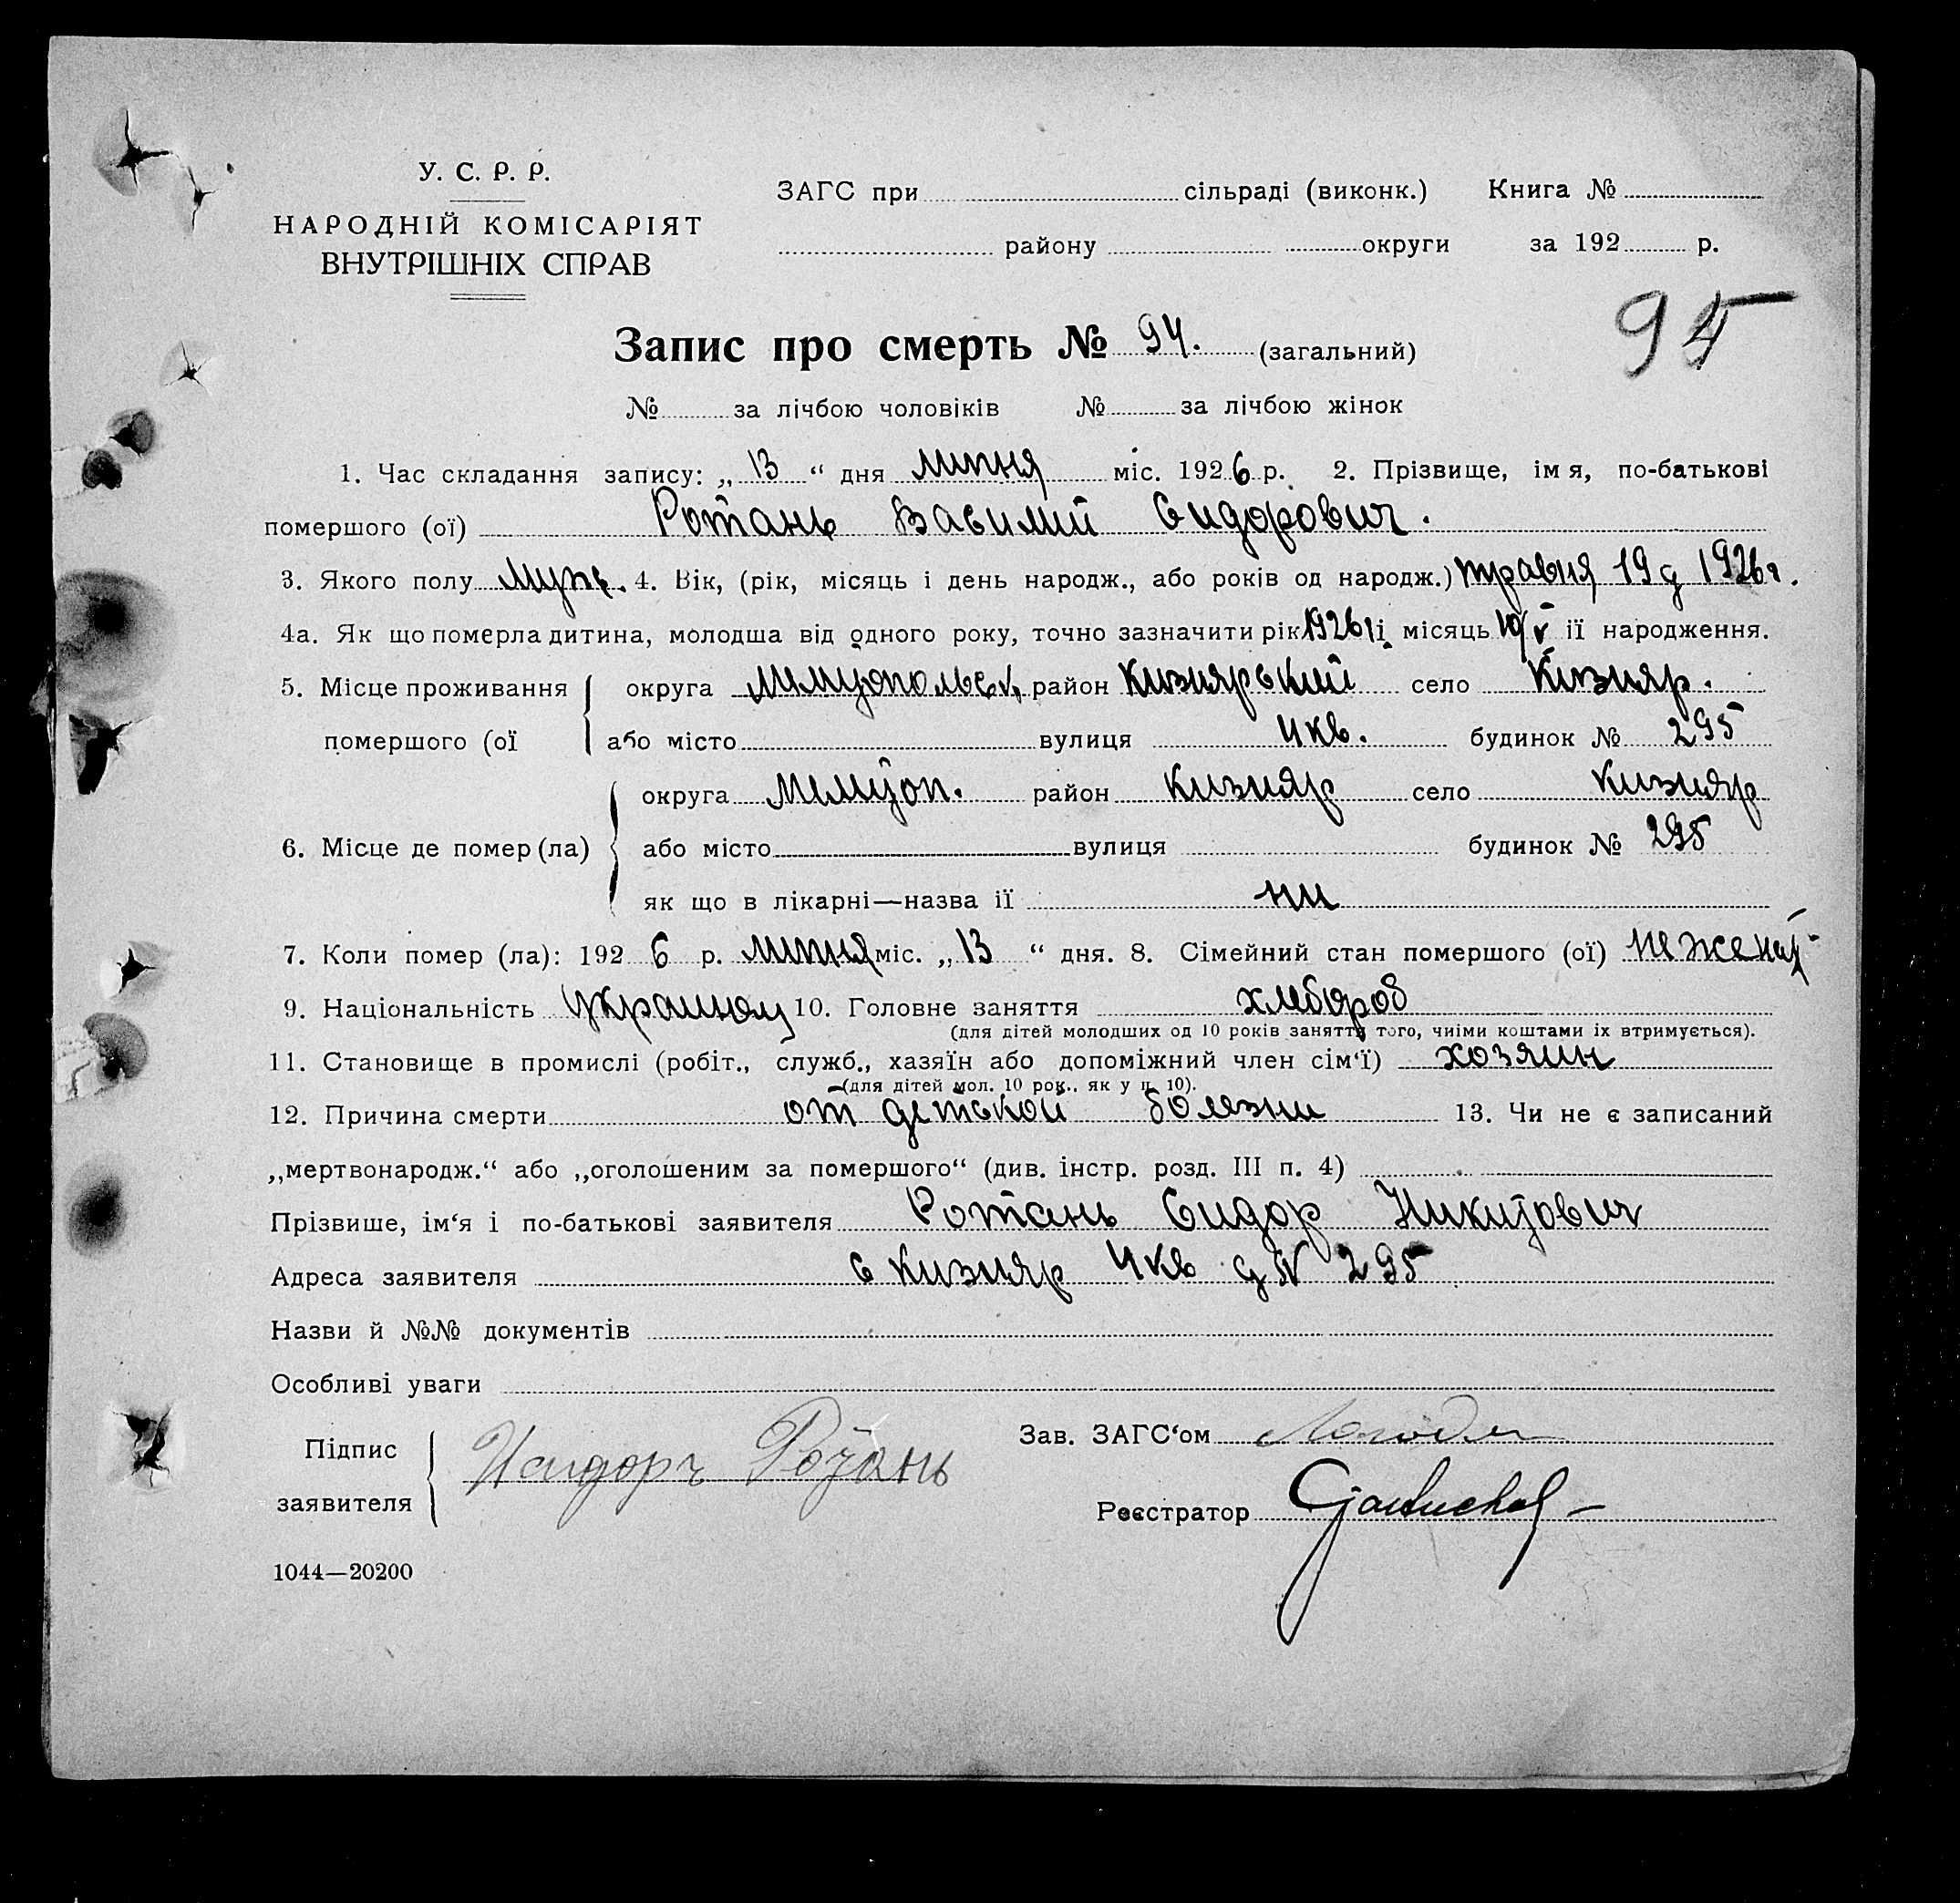 У. С. Р. Р.
НАРОДНІЙ КОМІСАРІЯТ
ВНУТРІШНІХ СПРАВ
ЗАГС при сільраді (виконк.) Книга №
району округи за 192 р.
95
Запис про смерть № 94. (загальний)
№ за лічбою чоловіків № за лічбою жінок
1. Час складання запису: „ 13 “ дня липня міс. 1926 р. 2. Прізвище, імя, по-батькові
помершого (ої) Ротань Василий Сидорович.
3. Якого полу муж. 4. Вік, (рік, місяць і день народж., або років од народж.) травня 19 д 1926 г.
4а. Як що померла дитина, молодша від одного року, точно зазначити рік 1926 і місяць ії народження.
5. Місце проживання округа район Кизиярський село Кизияр.
помершого (ої або місто вулиця 4 кв. будинок № 295
округа район Кизияр село Кизияр
6. Місце де помер (ла) або місто вулиця будинок № 295
як що в лікарні—назва ії ни
7. Коли помер (ла): 192 6 р. липня міс. „ 13 “ дня. 8. Сімейний стан помершого (ої) неженат
9. Національність 10. Головне заняття хлебороб
(для дітей молодших од 10 років заняття того, чиіми коштами іх втримується).
11. Становище в промислі (робіт., служб., хазяїн або допоміжний член сім‘ї) хозяин
(для дітей мол. 10 рок., як у п. 10).
12. Причина смерти от детской болезни 13. Чи не є записаний
„мертвонародж.“ або „оголошеним за помершого“ (див. інстр. розд. III п. 4)
Прізвише, ім‘я і по-батькові заявителя Ротань Сидор Никитович
Адреса заявителя с Кизияр 4 кв д № 295
Назви й №№ документів
Особливі уваги
Підпис
заявителя
Исидоръ Ротань
Зав. ЗАГС‘ом
Реєстратор
1044—20200